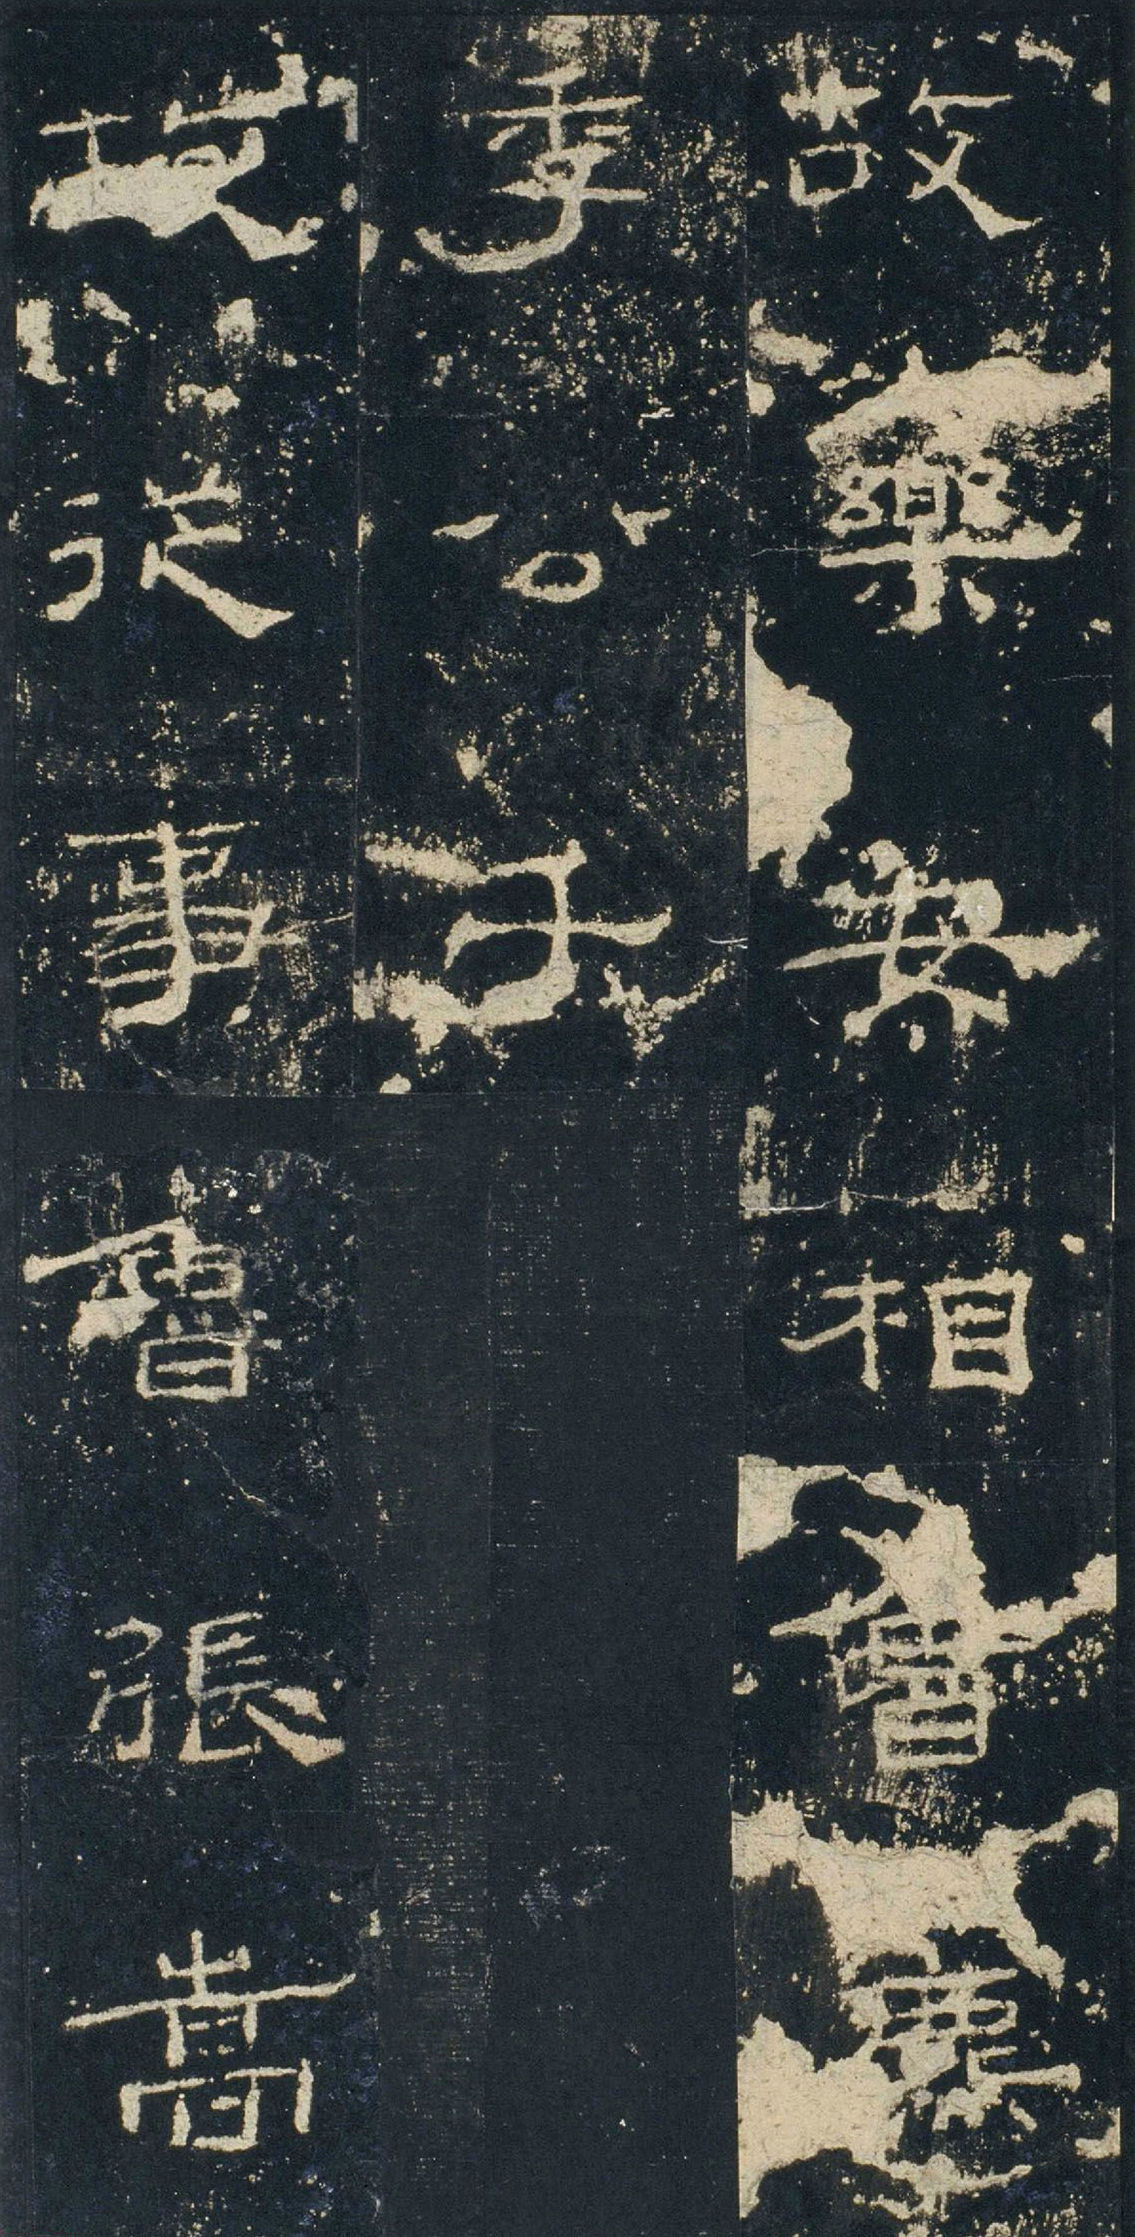 故樂安相魯麃
季公千
故從事魯張嵩